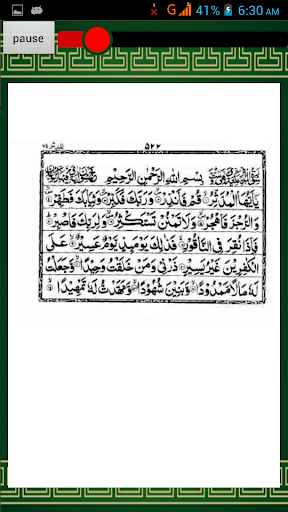 41% 6:30 AM
G
pause
المدثر ٧٤
٥٢٢
بِسْمِ اللّٰهِ الرَّحْمٰنِ الرَّحِيْمِ
يٰاَيُّهَا الْمُدَّثِّرُ قُمْ فَاَنْذِرْ وَرَبَّكَ فَكَبِّرْ وَثِيَابَكَ فَطَهِّرْ
وَالرُّجْزَ فَاهْجُرْ وَلَا تَمْنُنْ تَسْتَكْثِرُ وَلِرَبِّكَ فَاصْبِرْ
فَاِذَا نُقِرَ فِى النَّاقُوْرِ فَذٰلِكَ يَوْمَئِذٍ يَّوْمٌ عَسِيْرٌ عَلَى
الْكٰفِرِيْنَ غَيْرُ يَسِيْرٍ ذَرْنِىْ وَمَنْ خَلَقْتُ وَحِيْدًا وَّجَعَلْتُ
لَهٗ مَالًا مَّمْدُوْدًا وَّبَنِيْنَ شُهُوْدًا وَّمَهَّدْتُّ لَهٗ تَمْهِيْدًا